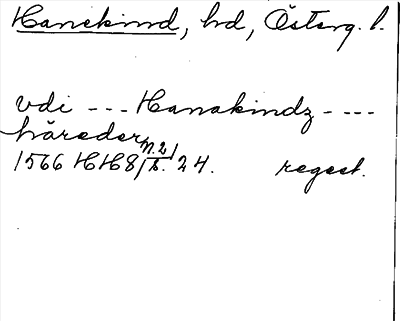 Hanekind, hd, Österg. l.
vdi --- Hanakindz ----
häreder
1566 HH8 24. regest.